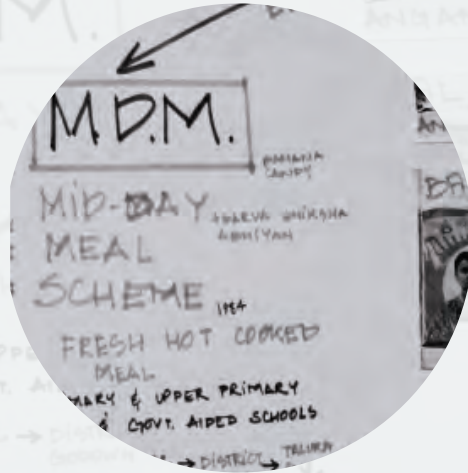 M.D.M.
MID-DAY
MEAL
SCHEME 1984
FRESH HOT COOKED
MEAL
MARY & UPPER PRIMARY
& GOVT. AIDED SCHOOLS
→ DISTRICT → TALUKA